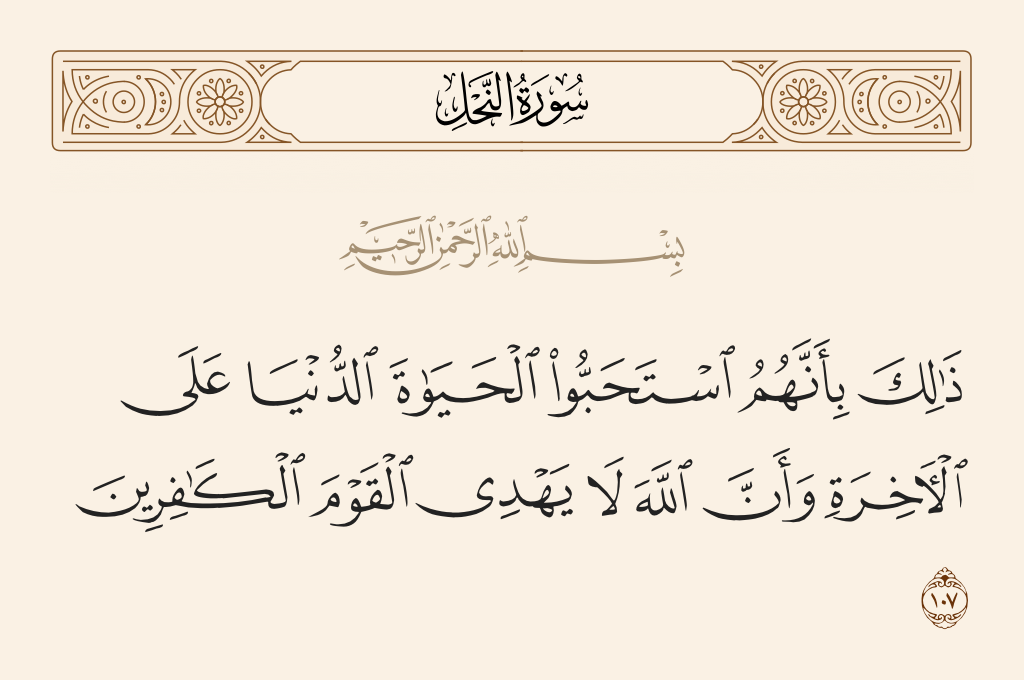 سُورَةُ النَّحْلِ
بِسْمِ ٱللَّهِ ٱلرَّحْمَٰنِ ٱلرَّحِيمِ
ذَٰلِكَ بِأَنَّهُمُ ٱسْتَحَبُّوا۟ ٱلْحَيَوٰةَ ٱلدُّنْيَا عَلَى
ٱلْـَٔاخِرَةِ وَأَنَّ ٱللَّهَ لَا يَهْدِى ٱلْقَوْمَ ٱلْكَـٰفِرِينَ
١٠٧